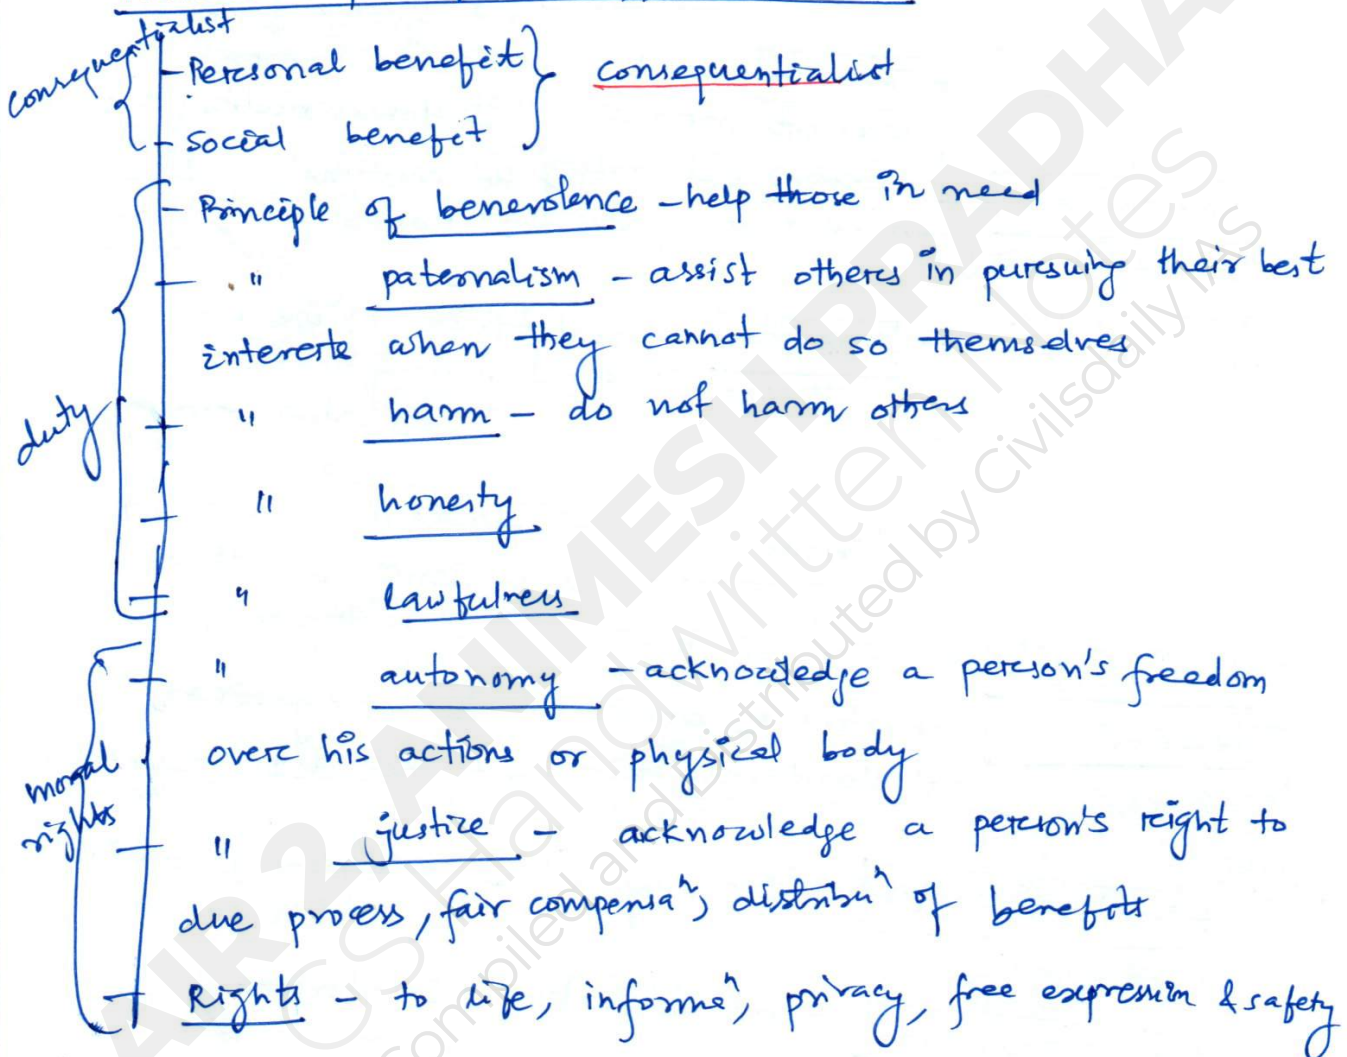 consequentialist
- Personal benefit } consequentialist
- Social benefit
- Principle of benevolence - help those in need
- " paternalism - assist others in pursuing their best
interests when they cannot do so themselves
duty
- " harm - do not harm others
- " honesty
- " Lawfulness
- " autonomy - acknowledge a person's freedom
over his actions or physical body
moral
rights
- " justice - acknowledge a person's right to
due process, fair compensaⁿ, distribuⁿ of benefits
- Rights - to life, informaⁿ, privacy, free expression & safety
AIR 2, ANIMESH PRADHA
GS Handwritten Notes
Compiled and Distributed by Civilsdaily IAS